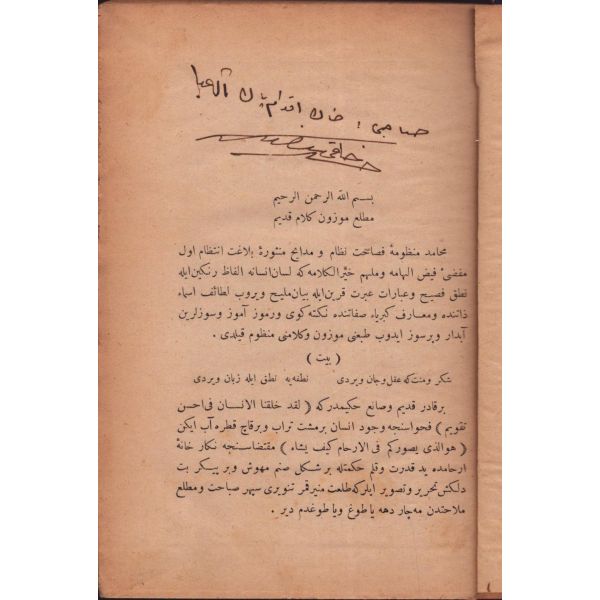 صاحبی : خاك اقدام
بسم الله الرحمن الرحیم
مطلع موزون كلام قدیم
محامد منظومهٔ فصاحت نظام و مدایح منثورهٔ بلاغت انتظام اول
مفضئ فیض الهامه و ملهم خیرالكلامه كه لسان انسانه الفاظ رنكین ایله
نطق فصیح و عبارات عبرت قرین ایله بیان ملیح ویروب لطائف اسماء
ذاتنده و معارف كبریاء صفاتنده نكته كوی و رموز آموز و سوزلرین
آبدار و پرسوز ایدوب طبعنی موزون و كلامنی منظوم قیلدی .
( بیت )
شكر و منت كه عقل و جان ویردی نطفه یه نطق ایله زبان ویردی
بر قادر قدیم و صانع حكیمدر كه ( لقد خلقنا الانسان فی احسن
تقویم ) فحواسنجه وجود انسان بر مشت تراب و بر قاچ قطره آب ایكن
( هوالذی یصوركم فی الارحام كیف یشاء ) مقتضاسنجه نكار خانهٔ
ارحامده ید قدرت و قلم حكمتله بر شكل صنم مهوش و بر پیكر بت
دلكش تحریر و تصویر ایلر كه طلعت منیر قمر تنویری سپهر صباحت و مطلع
ملاحتدن مه چار دهه یا طوغ و یا طوغدم دیر .